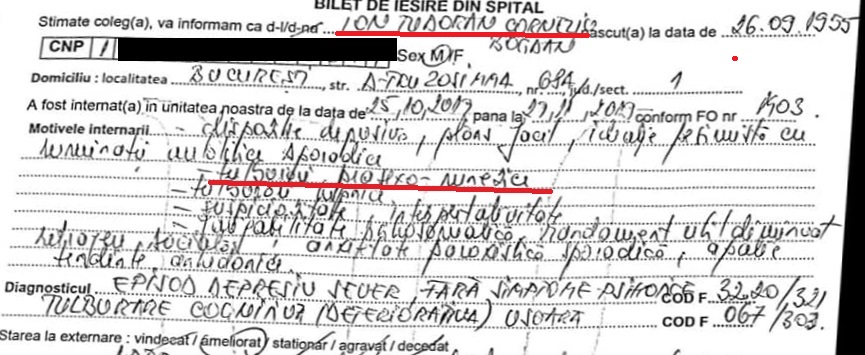 BILET DE IEȘIRE DIN SPITAL
Stimate coleg(a), va informam ca d-l/d-na ION TUDORAN CORNELIU născut(a) la data de 26.09.1955
BOGDAN
CNP 1 Sex M/F.
Domiciliu : localitatea BUCURESTI, str. nr. 68A jud./sect. 1
A fost internat(a) in unitatea noastra de la data de 25,10,2017 pana la 2017 conform FO nr 1403.
Motivele internarii – dispozitie depresiva, plans facil, ideatie pesimista cu
ruminatii autolitice sporadice
– tulburari prosexo-mnezice
– tulburari hipnice
– suspiciozitate, interpretativitate
– fatigabilitate psihosomatica, randament util diminuat
retragere sociala, anxietate paroxistică sporadică, apatie
tendinte anhedonice.
Diagnosticul EPISOD DEPRESIV SEVER, FARĂ SIMPTOME PSIHOTICE COD F 32.20/321
TULBURARE COGNITIVA (DETERIORATIVA) USOARA COD F 067/303.
Starea la externare : vindecat / ameliorat / stationar / agravat / decedat